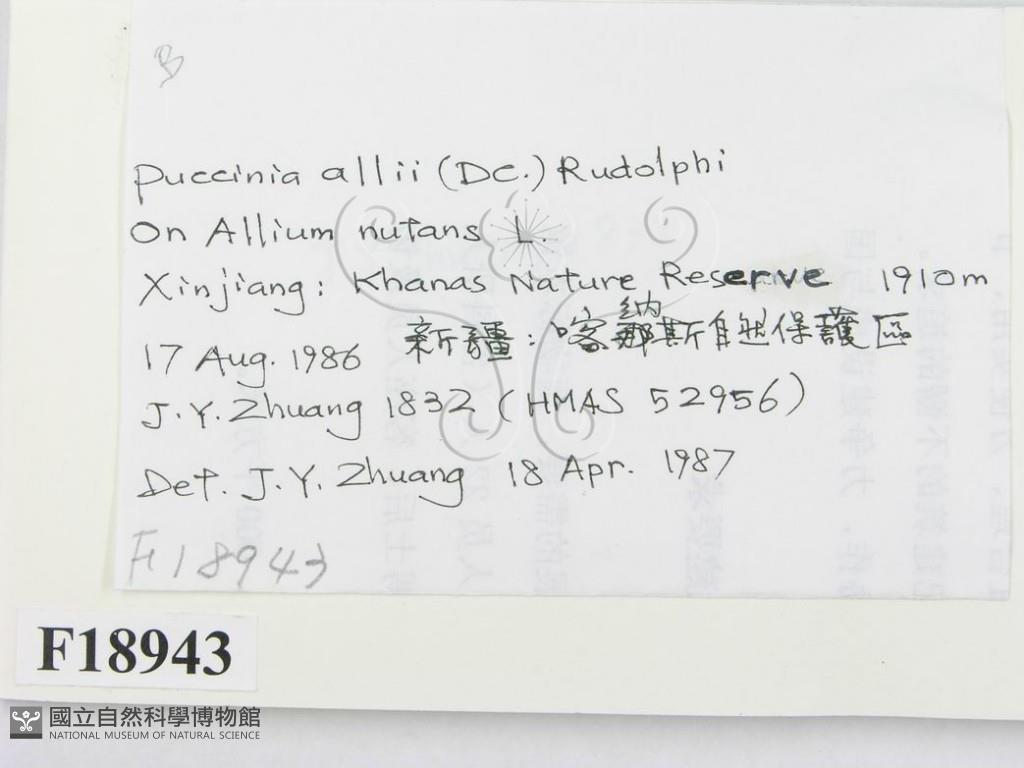 B
Puccinia allii (DC.) Rudolphi
On Allium nutans L.
Xinjiang: Khanas Nature Reserve 1910m
納
新疆:喀那斯自然保護區
17 Aug. 1986
J.Y. Zhuang 1832 (HMAS 52956)
Det. J.Y. Zhuang 18 Apr. 1987
F18943
F18943
國立自然科學博物館
NATIONAL MUSEUM OF NATURAL SCIENCE